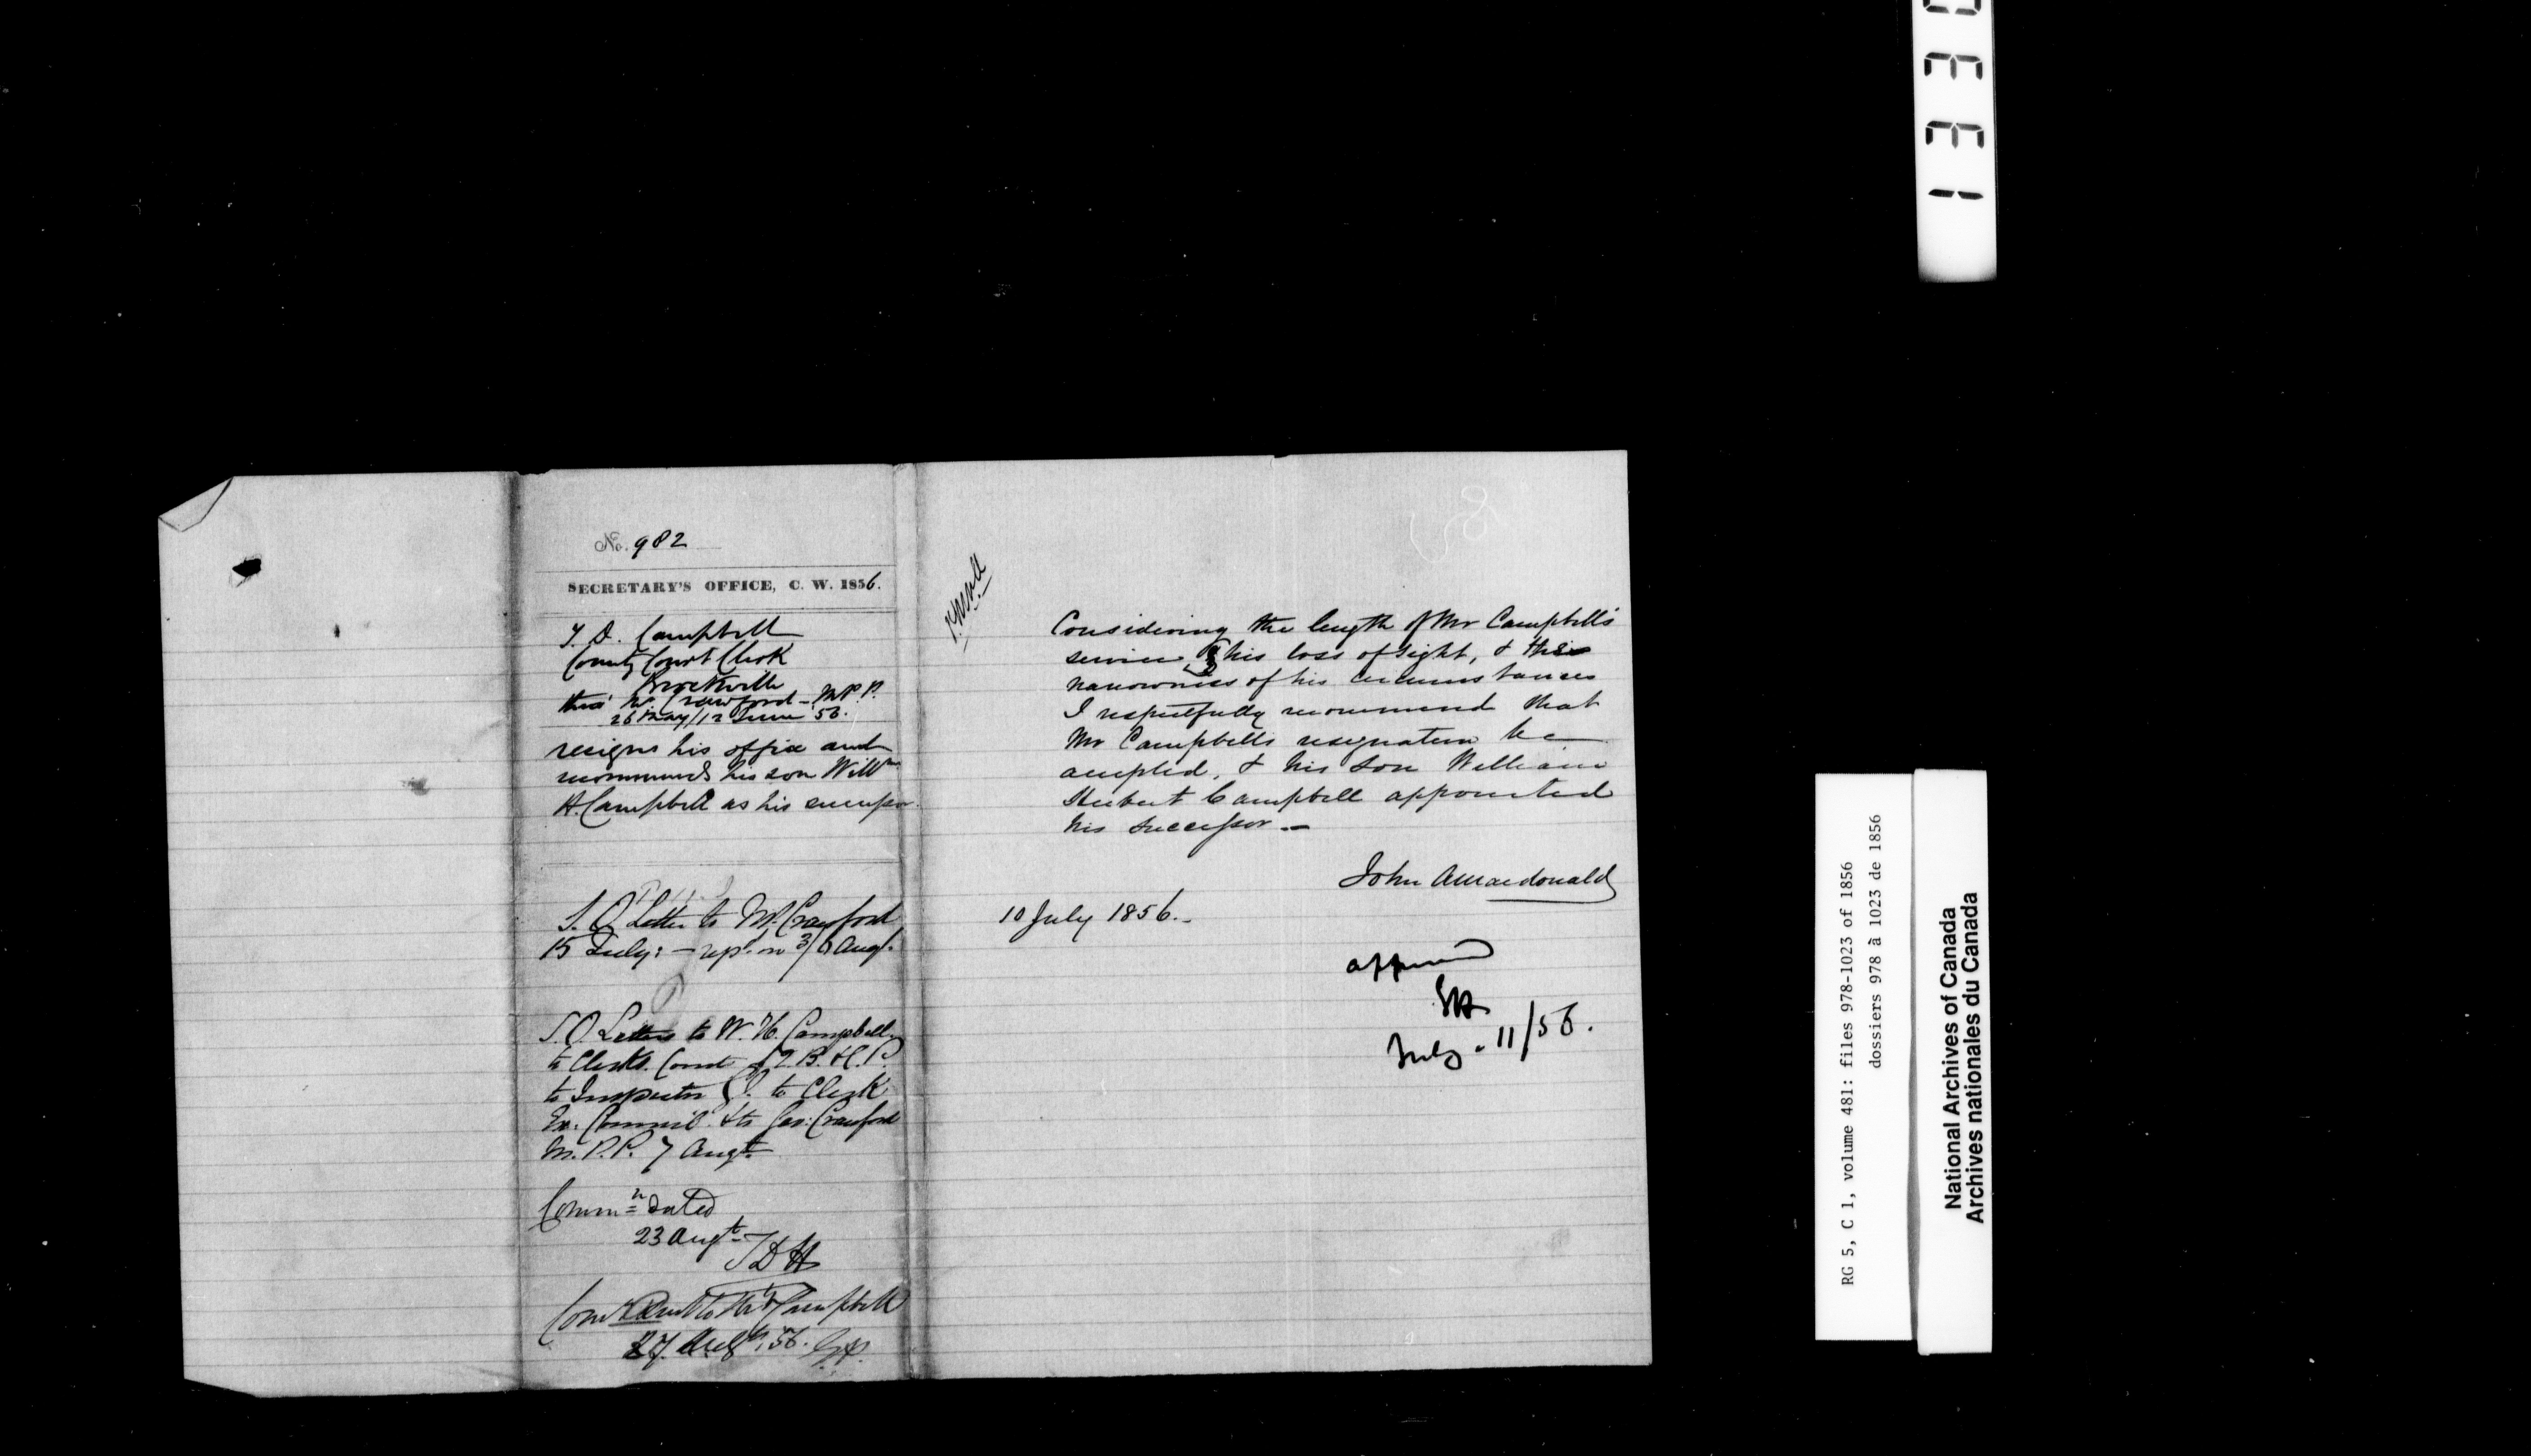 No. 982
SECRETARY'S OFFICE, C. W. 1856.
T. D. Campbell
County Court Clerk
Brockville
thro' Mr. Crawford - M.P.P.
26 May/12 June 56.
resigns his office and
recommends his son Willm
H. Campbell as his successor.
S. O. Letter to Mr. Crawford
15 July: - repd. on 3/6 Augt.
S. O. Letters to W. H. Campbell,
to Clerks. Court of Q. B. & C. P.
to Inspector Gl. to Clerk
Ex: Council. & to Geo: Crawford
M. P. P. 7 Augt.
Commn dated
23 Augt.
T D H
Comn Sent to Mr Campbell
27 Augt, 56.
Considering the length of Mr Campbell's
service, his loss of sight, & the
narrowness of his circumstances
I respectfully recommend that
Mr Campbells resignation be
accepted, & his son William
Herbert Campbell appointed
his successor.—
John A Macdonald
10 July 1856.-
approved
EH
July - 11/56.
133
RG 5, C 1, volume 481: files 978-1023 of 1856
dossiers 978 à 1023 de 1856
National Archives of Canada
Archives nationales du Canada